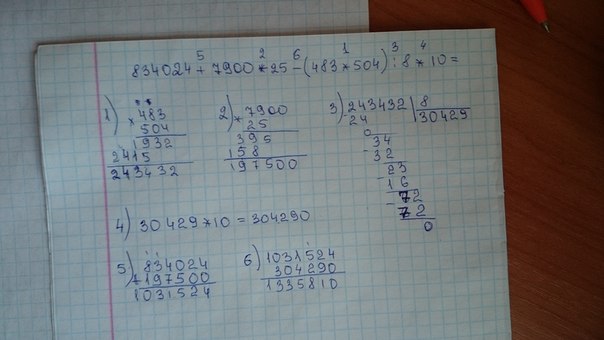 5 2 6 1 3 4
834024 + 7900 * 25 - (483 * 504) : 8 * 10 =
1)
* 483
504
1932
2415
243432
2)
* 7900
25
395
158
197500
3) - 243432 | 8
24 30429
0
34
- 32
23
- 16
72
- 72
0
4) 30429 * 10 = 304290
5) 834024
+ 197500
1031524
6) 1031524
304290
1335810